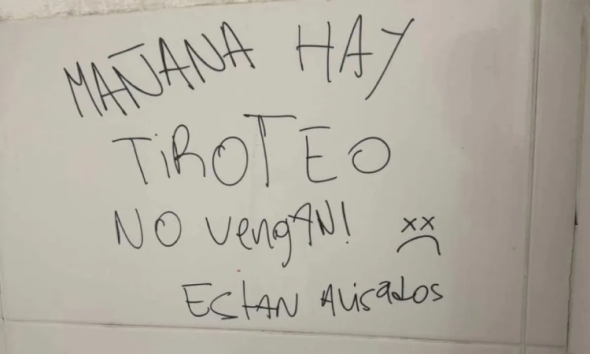 MAÑANA HAY
TIROTEO
NO VENGAN!
ESTAN AVISADOS